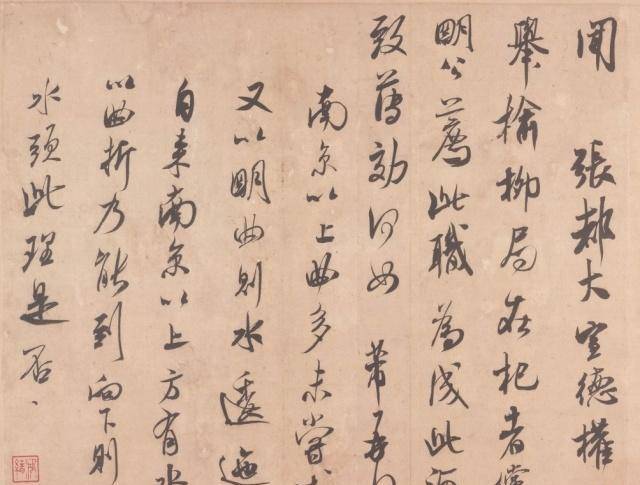 聞　張都大宣德權
舉榆柳局在杞者當
明公薦此職為成此河
致薄効何如　芾再
南京以上曲多未嘗
又以明曲則水逶迤
自來南京以上方有水
以曲折乃能到向下則
水頭此理是否、